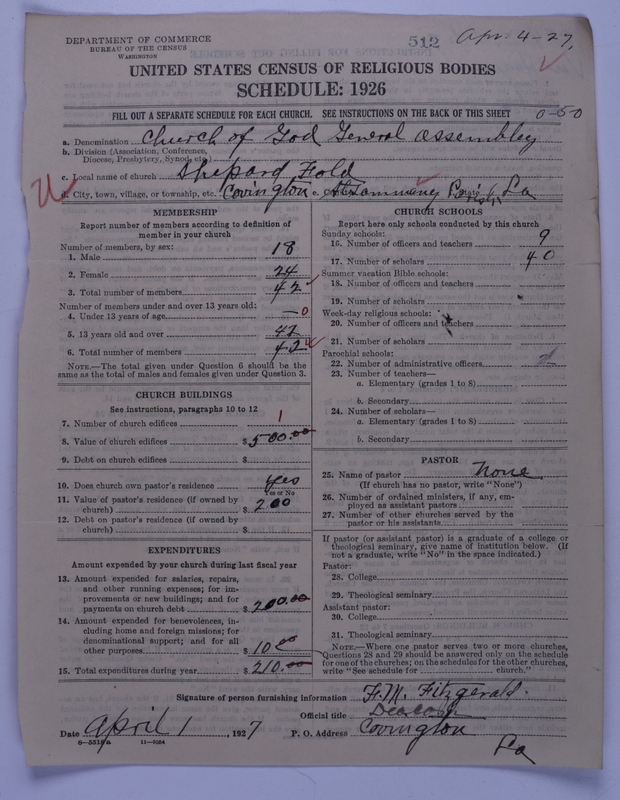 DEPARTMENT OF COMMERCE
BUREAU OF THE CENSUS
WASHINGTON
512
Apr. 4-27,
UNITED STATES CENSUS OF RELIGIOUS BODIES
SCHEDULE: 1926
FILL OUT A SEPARATE SCHEDULE FOR EACH CHURCH. SEE INSTRUCTIONS ON THE BACK OF THIS SHEET
0-50
a. Denomination Church of God General Assembley
b. Division (Association, Conference,
Diocese, Presbytery, Synod, etc.)
c. Local name of church Shepard Fold
d. City, town, village, or township, etc. Covington St Tammany Parish La
MEMBERSHIP
Report number of members according to definition of
member in your church
Number of members, by sex:
1. Male 18
2. Female 24
3. Total number of members 42
Number of members under and over 13 years old:
4. Under 13 years of age — 0
5. 13 years old and over 42
6. Total number of members 42
NOTE.—The total given under Question 6 should be the
same as the total of males and females given under Question 3.
CHURCH BUILDINGS
See instructions, paragraphs 10 to 12
7. Number of church edifices 1
8. Value of church edifices $ 500.00
9. Debt on church edifices $
10. Does church own pastor's residence yes
Yes or No
11. Value of pastor's residence (if owned by
church) $ 200
12. Debt on pastor's residence (if owned by
church) $
EXPENDITURES
Amount expended by your church during last fiscal year
13. Amount expended for salaries, repairs,
and other running expenses; for im-
provements or new buildings; and for
payments on church debt $ 200.00
14. Amount expended for benevolences, in-
cluding home and foreign missions; for
denominational support; and for all
other purposes $ 10 00
15. Total expenditures during year $ 210.00
CHURCH SCHOOLS
Report here only schools conducted by this church
Sunday schools:
16. Number of officers and teachers 9
17. Number of scholars 40
Summer vacation Bible schools:
18. Number of officers and teachers
19. Number of scholars
Week-day religious schools:
20. Number of officers and teachers
21. Number of scholars
Parochial schools:
22. Number of administrative officers
23. Number of teachers—
a. Elementary (grades 1 to 8)
b. Secondary
24. Number of scholars—
a. Elementary (grades 1 to 8)
b. Secondary
PASTOR
25. Name of pastor None
(If church has no pastor, write "None")
26. Number of ordained ministers, if any, em-
ployed as assistant pastors
27. Number of other churches served by the
pastor or his assistants
If pastor (or assistant pastor) is a graduate of a college or
theological seminary, give name of institution below. (If
not a graduate, write "No" in the space indicated.)
Pastor:
28. College
29. Theological seminary
Assistant pastor:
30. College
31. Theological seminary
NOTE.—Where one pastor serves two or more churches,
Questions 28 and 29 should be answered only on the schedule
for one of the churches; on the schedules for the other churches,
write "See schedule for church."
Signature of person furnishing information F. M. Fitzgerald.
Official title Deacon
Date April 1, 1927 P. O. Address Covington
La
8-5518a 11-9384